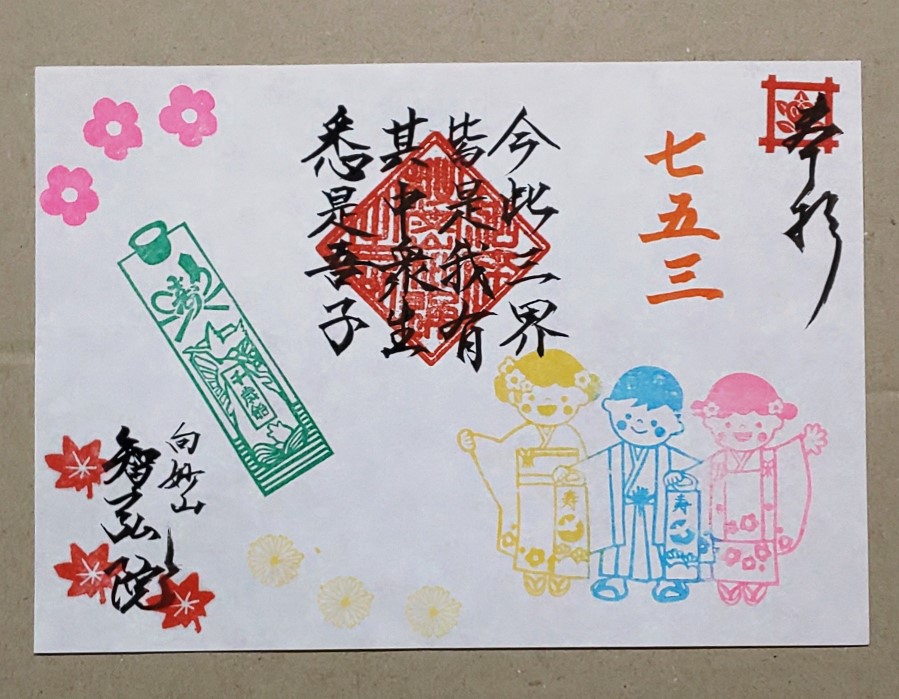 奉拝
七五三
今此三界
皆是我有
其中衆生
悉是吾子
寿
千歳飴
寿
寿
向妙山
智弘院